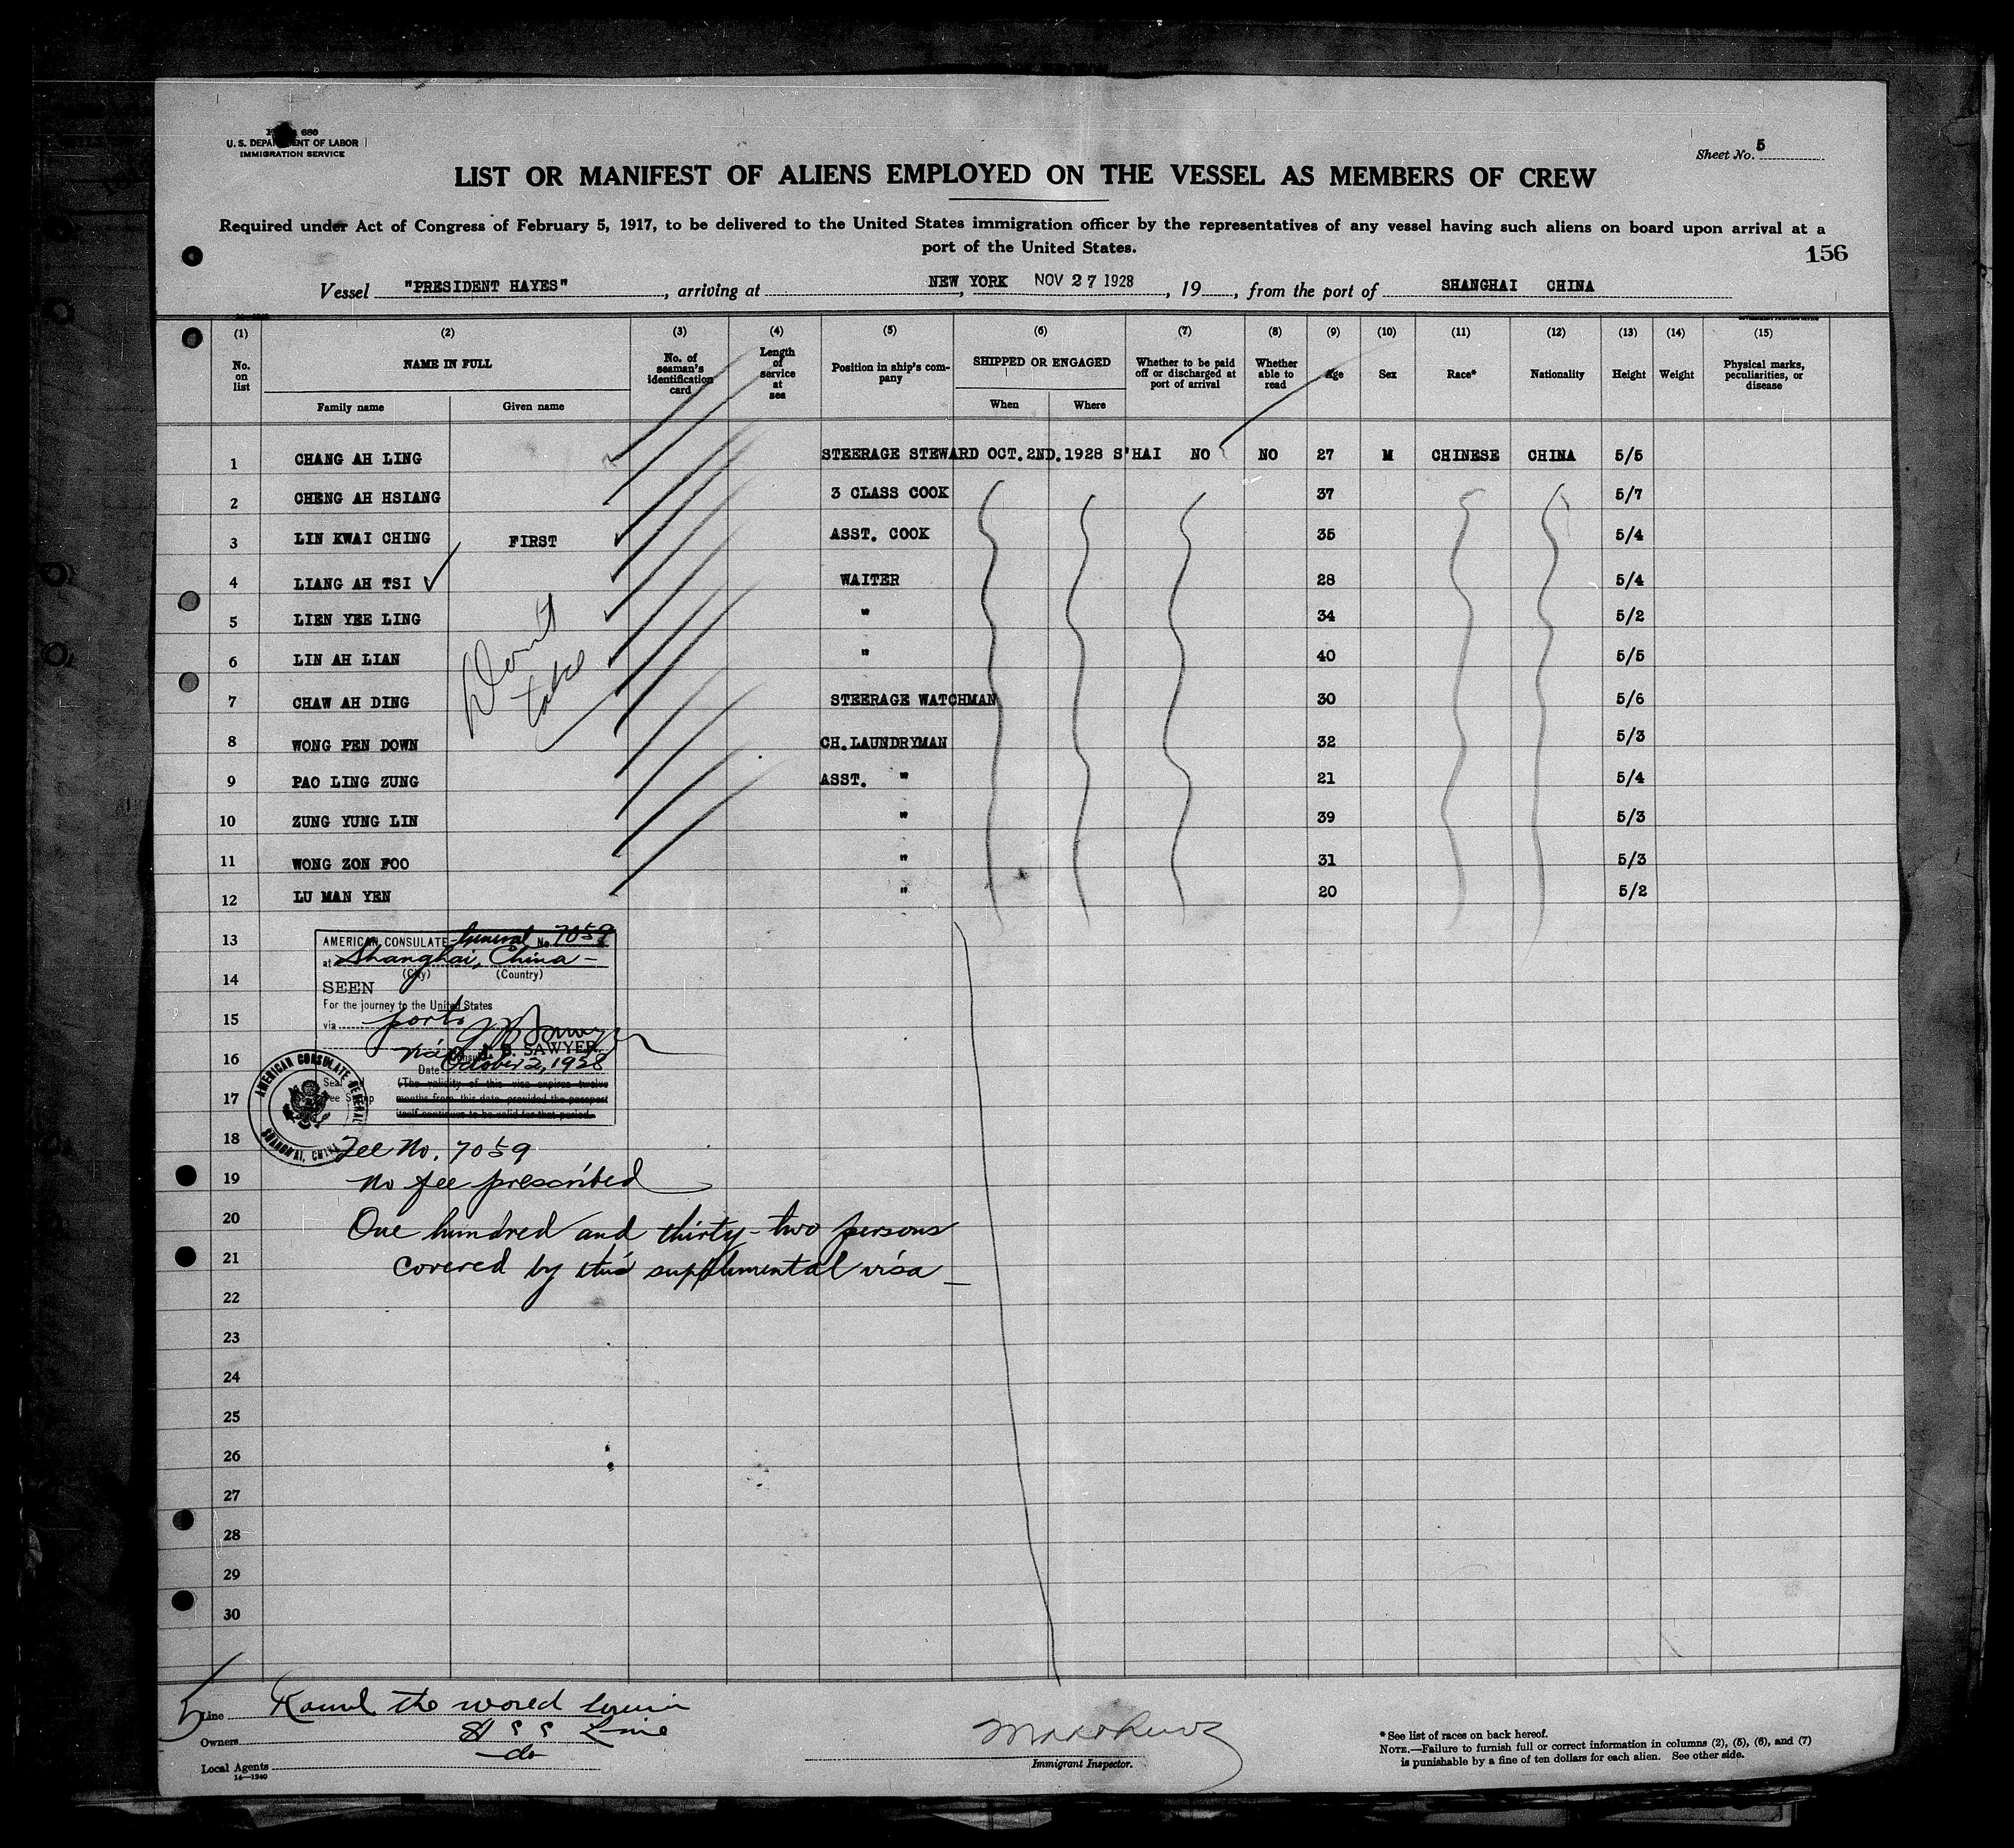 680
U. S. DEPARTMENT OF LABOR
IMMIGRATION SERVICE
Sheet No. 5
LIST OR MANIFEST OF ALIENS EMPLOYED ON THE VESSEL AS MEMBERS OF CREW
Required under Act of Congress of February 5, 1917, to be delivered to the United States immigration officer by the representatives of any vessel having such aliens on board upon arrival at a
port of the United States.
156
Vessel "PRESIDENT HAYES", arriving at NEW YORK NOV 27 1928, 19, from the port of SHANGHAI CHINA
(1) (2) (3) (4) (5) (6) (7) (8) (9) (10) (11) (12) (13) (14) (15)
No. on list NAME IN FULL Family name Given name No. of seaman's identification card Length of service at sea Position in ship's company SHIPPED OR ENGAGED When Where Whether to be paid off or discharged at port of arrival Whether able to read Age Sex Race* Nationality Height Weight Physical marks, peculiarities, or disease
1 CHANG AH LING STEERAGE STEWARD OCT. 2ND. 1928 S'HAI NO NO 27 M CHINESE CHINA 5/5
2 CHENG AH HSIANG 3 CLASS COOK 37 5/7
3 LIN KWAI CHING FIRST ASST. COOK 35 5/4
4 LIANG AH TSI WAITER 28 5/4
5 LIEN YEE LING " 34 5/2
6 LIN AH LIAN " 40 5/5
Don't
take
7 CHAW AH DING STEERAGE WATCHMAN 30 5/6
8 WONG PEN DOWN CH. LAUNDRYMAN 32 5/3
9 PAO LING ZUNG ASST. " 21 5/4
10 ZUNG YUNG LIN " 39 5/3
11 WONG ZON FOO " 31 5/3
12 LU MAN YEN " 20 5/2
13
14
15
16
17
18
19
20
21
22
23
24
25
26
27
28
29
30
AMERICAN CONSULATE General No. 7059
at Shanghai, China
(City) (Country)
SEEN
For the journey to the United States
via ports
SAWYER
Date October 2, 1928
(The validity of this visa expires twelve
months from this date, provided the passport
itself continues to be valid for that period.
Seal
AMERICAN CONSULATE GENERAL
SHANGHAI, CHINA
Fee No. 7059
No fee prescribed
One hundred and thirty-two persons
covered by this supplimental visa
5
Line
Owners Line
Local Agents do
14—1240
Immigrant Inspector.
* See list of races on back hereof.
NOTE.—Failure to furnish full or correct information in columns (2), (5), (6), and (7)
is punishable by a fine of ten dollars for each alien. See other side.